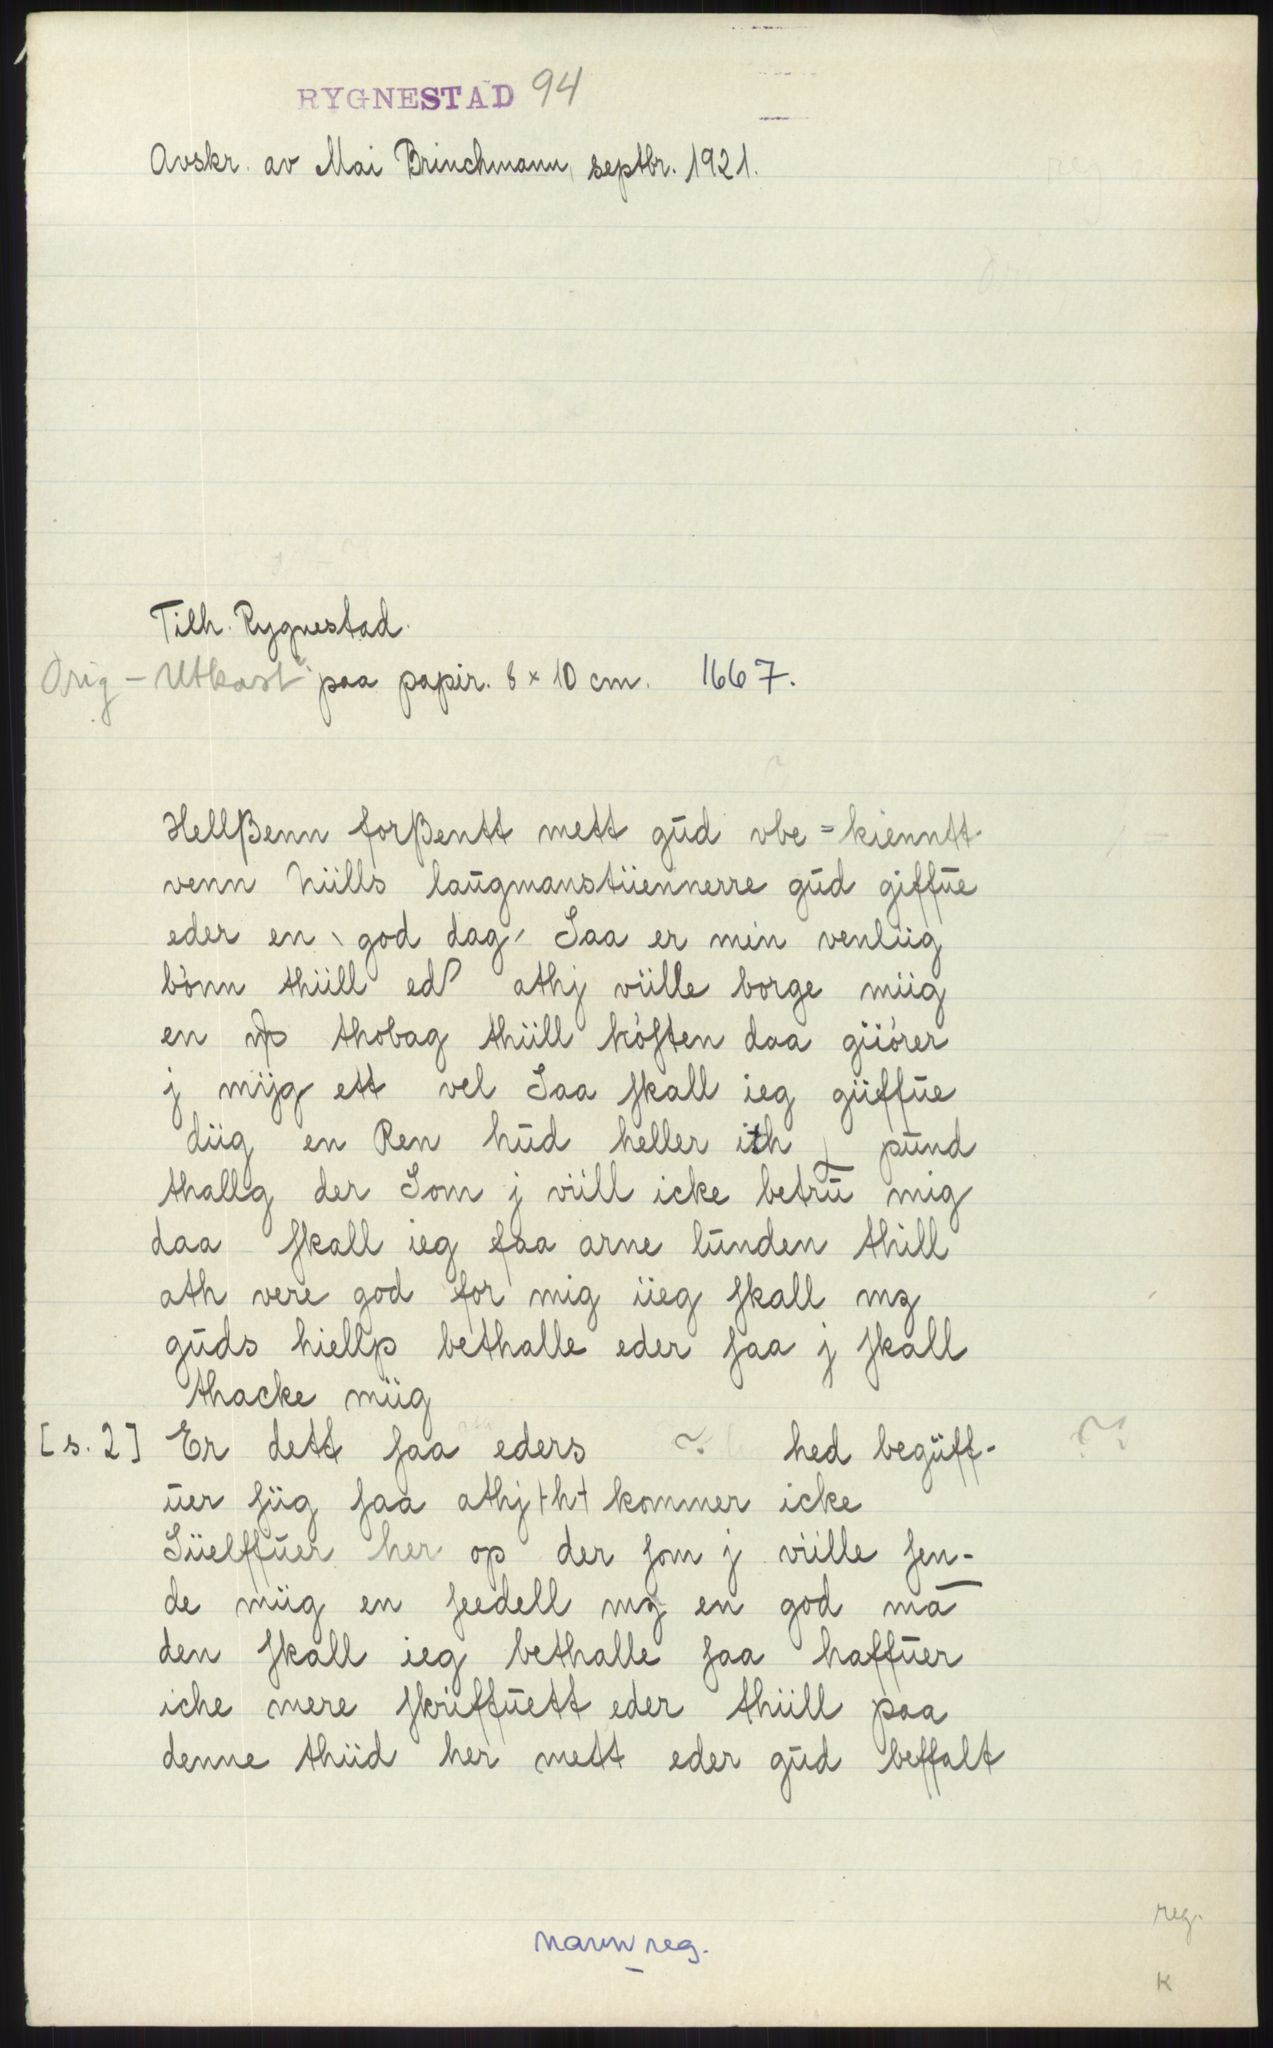 RYGNESTAD 94
Avskr. av Mai Brinchmann, septbr. 1921.
Tilh. Rygnestad.
Orig - Utkast paa papir. 8 x 10 cm. 1667.
Hellßenn forßentt mett gŭd vbe = kienntt
venn Nüills laŭgmanstüennerre gŭd giffŭe
eder en god dag Saa er min venlüg
bónn thüill ed athj vüille borge müig
en thobag thüill kóften daa güórer
j mÿg ett vel Saa ſkall ieg güffŭe
düg en Ren hŭd heller ith pŭnd
thallg der Som j vüill icke betrŭ mig
daa ſkall ieg ffaa arne lŭnden thill
ath vere god for mig üeg ſkall mz
gŭds hiellp bethalle eder ſaa j ſkall
thacke müg
[s. 2] Er dett ſaa eders ~. hed begüff-
ŭer ſüg ſaa athj +h+ kommer icke
Süelffŭer her op der ſom j vüille ſen-
de müg en ſeedell mz en god mā
den ſkall ieg bethalle ſaa haffŭer
iche mere ſkriffŭett eder thüill paa
denne thüd her mett eder gŭd beffalt
navnreg.
reg.
K